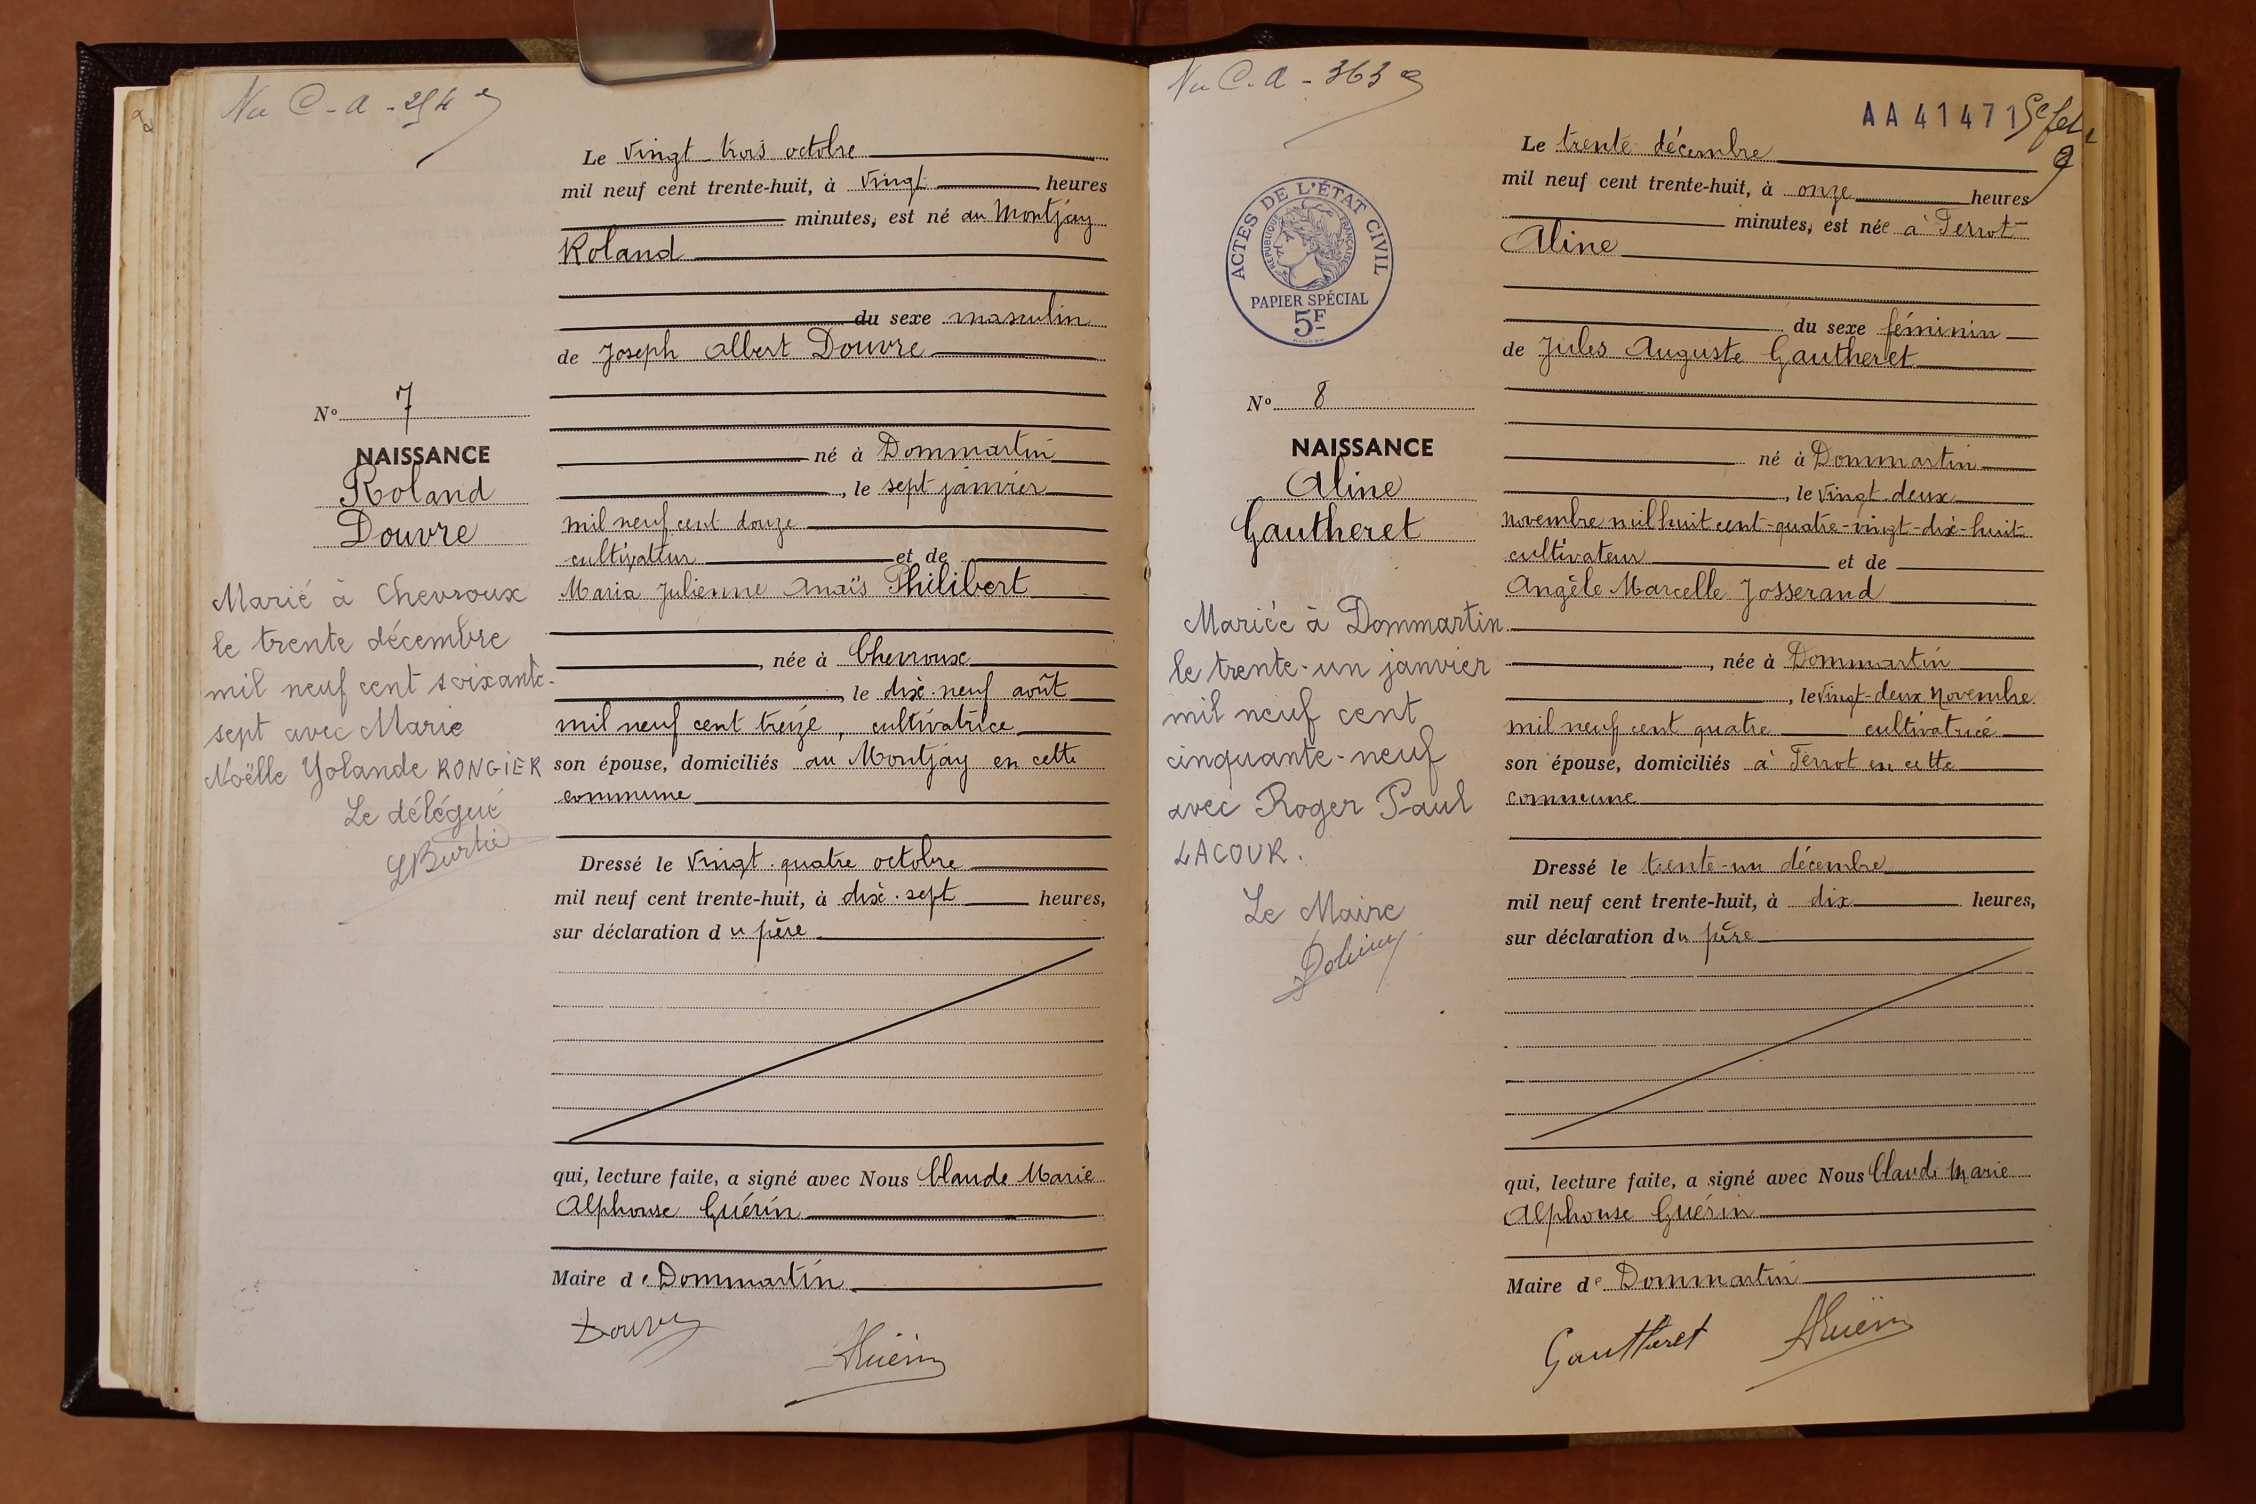 Vu C-A-254
Le vingt trois octobre
mil neuf cent trente-huit, à vingt heures
minutes, est né au Montjay
Roland
du sexe masculin
de Joseph Albert Douvre
né à Dommartin
, le sept janvier
mil neuf cent douze
cultivateur et de
Maria Julienne Anaïs Philibert
, née à Chevroux
, le dix-neuf août
mil neuf cent treize, cultivatrice
son épouse, domiciliés au Montjay en cette
commune
Dressé le vingt-quatre octobre
mil neuf cent trente-huit, à dix-sept heures,
sur déclaration du père
qui, lecture faite, a signé avec Nous Claude Marie
Alphonse Guérin
Maire de Dommartin
Douvre
AGuérin
No 7
NAISSANCE
Roland
Douvre
Marié à Chevroux
le trente décembre
mil neuf cent soixante-
sept avec Marie
Noëlle Yolande RONGIER
Le délégué
Vu C.A-363
AA41471
Le trente décembre
mil neuf cent trente-huit, à onze heures
minutes, est née à Terrot
Aline
du sexe féminin
de Jules Auguste Gautheret
né à Dommartin
, le vingt-deux
novembre mil huit cent-quatre-vingt-dix-huit
cultivateur et de
Angèle Marcelle Josserand
, née à Dommartin
, le vingt-deux novembre
mil neuf cent quatre cultivatrice
son épouse, domiciliés à Terrot en cette
commune
Dressé le trente-un décembre
mil neuf cent trente-huit, à dix heures,
sur déclaration du père
qui, lecture faite, a signé avec Nous Claude Marie
Alphonse Guérin
Maire de Dommartin
Gautheret
AGuérin
ACTES DE L'ÉTAT CIVIL
RÉPUBLIQUE FRANÇAISE
PAPIER SPÉCIAL
5F
No 8
NAISSANCE
Aline
Gautheret
Mariée à Dommartin
le trente-un janvier
mil neuf cent
cinquante-neuf
avec Roger Paul
LACOUR.
Le Maire